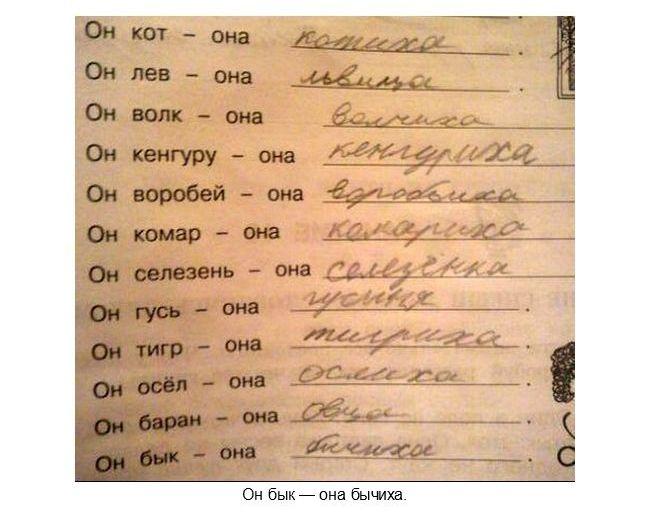 Он кот – она котиха.
Он лев – она львица.
Он волк – она волчиха
Он кенгуру – она кенгуриха
Он воробей – она воробьиха
Он комар – она комариха
Он селезень – она селезёнка
Он гусь – она гусыня.
Он тигр – она тигриха.
Он осёл – она ослиха.
Он баран – она овца.
Он бык – она бычиха.
Он бык — она бычиха.